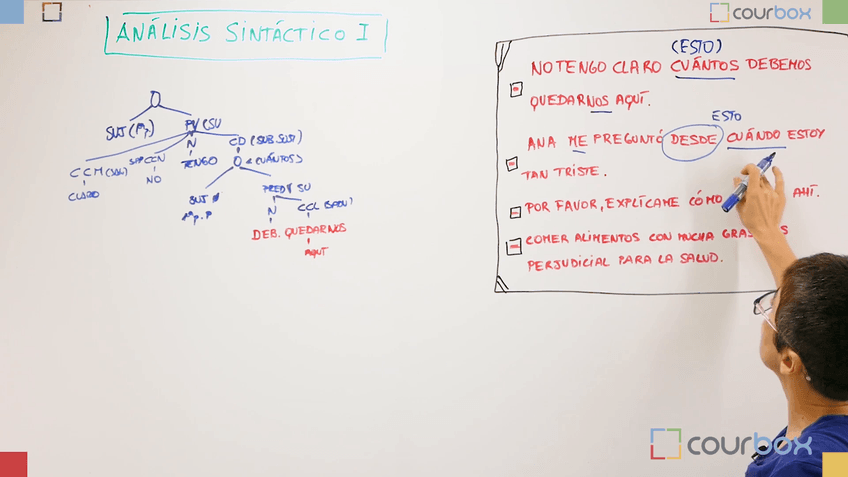 courbox
ANÁLISIS SINTÁCTICO I
O
SUJ
CD (SUB.SUST)
N
CCM
TENGO
NO
CLARO
O
SUJ
N
DEB. QUEDARNOS
AQUÍ
(ESTO)
NO TENGO CLARO CUÁNTOS DEBEMOS
QUEDARNOS AQUÍ.
ESTO
ANA ME PREGUNTÓ DESDE CUÁNDO ESTOY
TAN TRISTE.
POR FAVOR, EXPLÍCAME CÓMO AHÍ.
COMER ALIMENTOS CON MUCHA
PERJUDICIAL PARA LA SALUD.
courbox